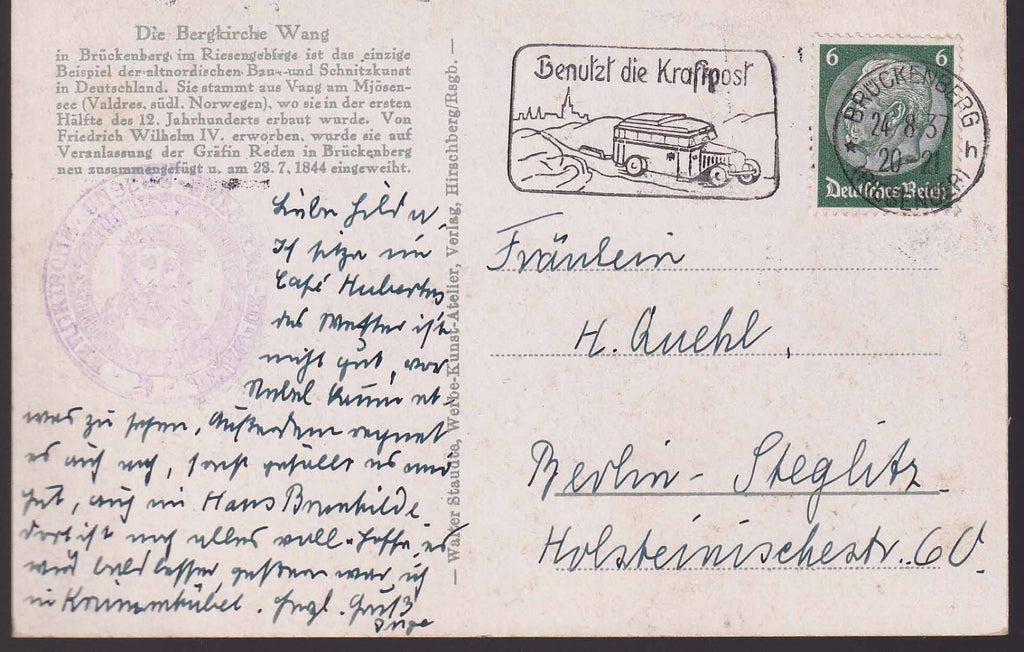 Die Bergkirche Wang
in Brückenberg im Riesengebirge ist das einzige
Beispiel der altnordischen Bau- und Schnitzkunst
in Deutschland. Sie stammt aus Vang am Mjösen-
see (Valdres, südl. Norwegen), wo sie in der ersten
Hälfte des 12. Jahrhunderts erbaut wurde. Von
Friedrich Wilhelm IV. erworben, wurde sie auf
Veranlassung der Gräfin Reden in Brückenberg
neu zusammengefügt u. am 28. 7. 1844 eingeweiht.
Benutzt die Kraftpost
6 6
Deutsches Reich
BRÜCKENBERG
24.8.37
20-21
h
Liebe Hild
Ich sitze im
Café Hubertus
das Wetter ist
nicht gut, vor
Nebel kaum et-
was zu sehen, Außerdem regnet
es auch noch, sonst gefällt es mir
gut, auch im Haus
dort ist noch alles voll. Hoffe, es
wird bald besser, gestern war ich
in Krummhübel. Herzl. Gruß
Inge
– Walter Staudte, Werbe-Kunst-Atelier, Verlag, Hirschberg/Rsgb. –
Fräulein
H. Quehl,
Berlin-Steglitz
Holsteinischestr. 60